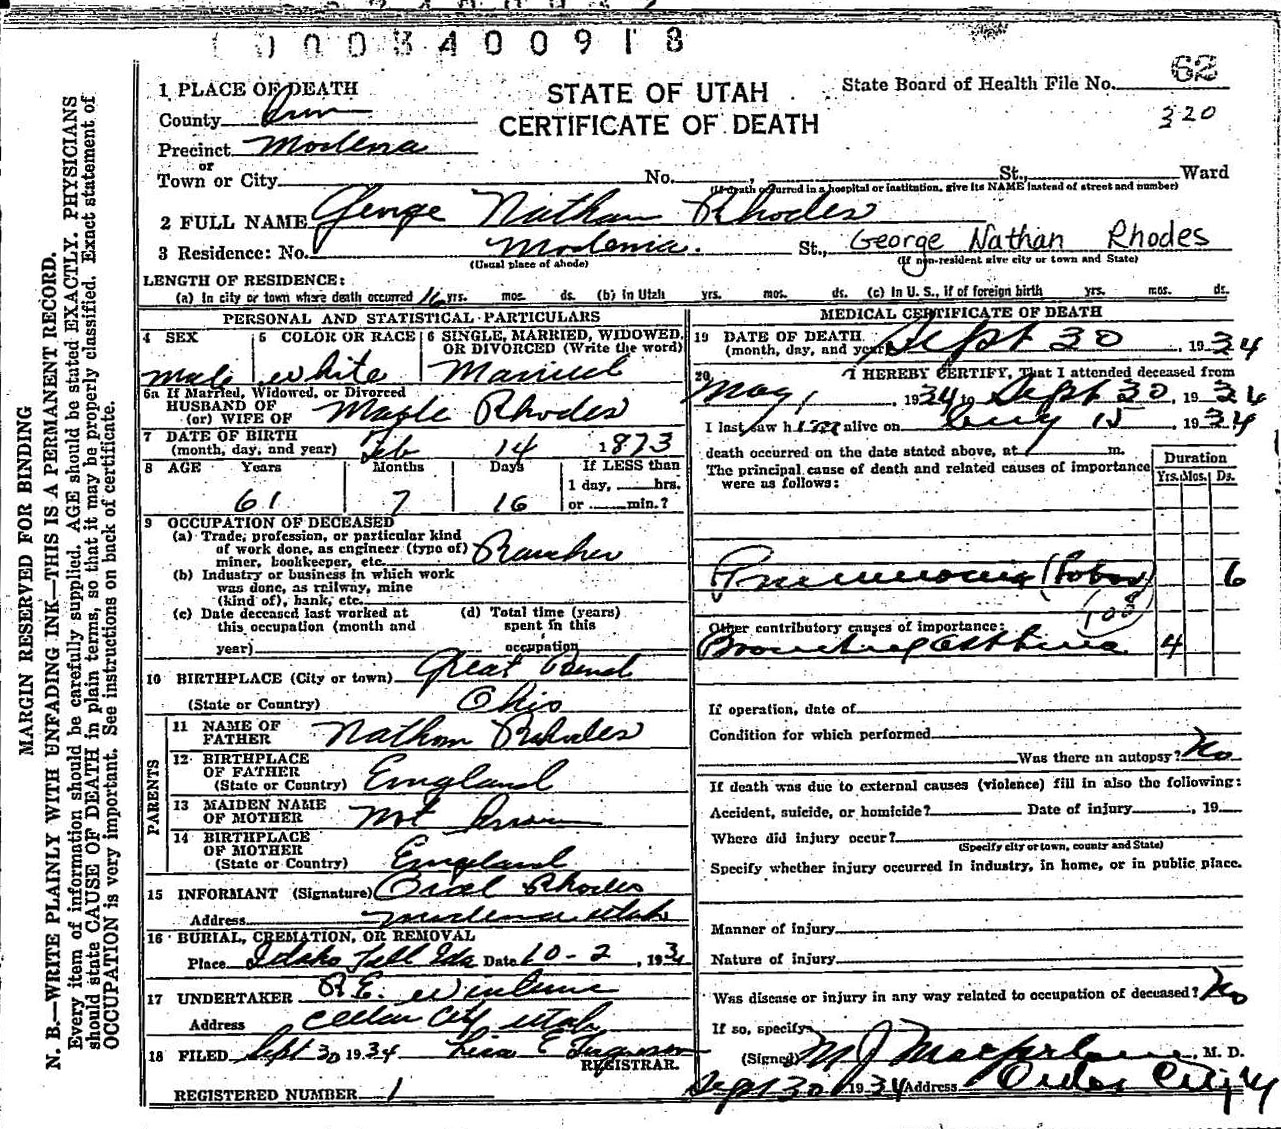 0003400918
1 PLACE OF DEATH
STATE OF UTAH
State Board of Health File No. 62
County Iron
CERTIFICATE OF DEATH
320
Precinct Modena
or
Town or City No. , St., Ward
(If death occurred in a hospital or institution, give its NAME instead of street and number)
2 FULL NAME George Nathan Rhodes
3 Residence: No. Modena. St., George Nathan Rhodes
(Usual place of abode) (If non-resident give city or town and State)
LENGTH OF RESIDENCE:
(a) In city or town where death occurred 16 yrs. mos. ds. (b) In Utah yrs. mos. ds. (c) In U. S., if of foreign birth yrs. mos. ds.
PERSONAL AND STATISTICAL PARTICULARS
4 SEX 5 COLOR OR RACE 6 SINGLE, MARRIED, WIDOWED, OR DIVORCED (Write the word)
Male White Married
6a If Married, Widowed, or Divorced
HUSBAND OF
(or) WIFE OF Rhodes
7 DATE OF BIRTH
(month, day, and year) Feb 14 1873
8 AGE Years Months Days If LESS than
1 day, hrs.
61 7 16 or min.?
9 OCCUPATION OF DECEASED
(a) Trade, profession, or particular kind
of work done, as engineer (type of)
miner, bookkeeper, etc. Rancher
(b) Industry or business in which work
was done, as railway, mine
(kind of), bank, etc.
(c) Date deceased last worked at
this occupation (month and
year)
(d) Total time (years)
spent in this
occupation
10 BIRTHPLACE (City or town) Great Bend
(State or Country) Ohio
PARENTS
11 NAME OF
FATHER Nathan Rhodes
12 BIRTHPLACE
OF FATHER
(State or Country) England
13 MAIDEN NAME
OF MOTHER Not Known
14 BIRTHPLACE
OF MOTHER
(State or Country) England
15 INFORMANT (Signature) Rhodes
Address Modena Utah
16 BURIAL, CREMATION, OR REMOVAL
Place Idaho Fall Ida Date 10-2, 1934
17 UNDERTAKER R.E.
Address Cedar City Utah
18 FILED Sept 30 1934
REGISTRAR.
REGISTERED NUMBER 1
MEDICAL CERTIFICATE OF DEATH
19 DATE OF DEATH
(month, day, and year) Sept 30, 1934
20 I HEREBY CERTIFY, That I attended deceased from
May, , 1934 to Sept 30, 1934
I last saw him alive on Aug 15, 1934
death occurred on the date stated above, at m.
The principal cause of death and related causes of importance
were as follows:
Duration
Yrs. Mos. Ds.
Pneumonia (Lobar) 6
(108)
Other contributory causes of importance:
Bronchial Asthma 4
If operation, date of
Condition for which performed
Was there an autopsy? No
If death was due to external causes (violence) fill in also the following:
Accident, suicide, or homicide? Date of injury , 19
Where did injury occur?
(Specify city or town, county and State)
Specify whether injury occurred in industry, in home, or in public place.
Manner of injury
Nature of injury
Was disease or injury in any way related to occupation of deceased? No
If so, specify
(Signed) M J Macfarlane, M. D.
Sept 30 1934 Address Cedar City
MARGIN RESERVED FOR BINDING
N. B.—WRITE PLAINLY WITH UNFADING INK—THIS IS A PERMANENT RECORD.
Every item of information should be carefully supplied. AGE should be stated EXACTLY. PHYSICIANS
should state CAUSE OF DEATH in plain terms, so that it may be properly classified. Exact statement of
OCCUPATION is very important. See instructions on back of certificate.